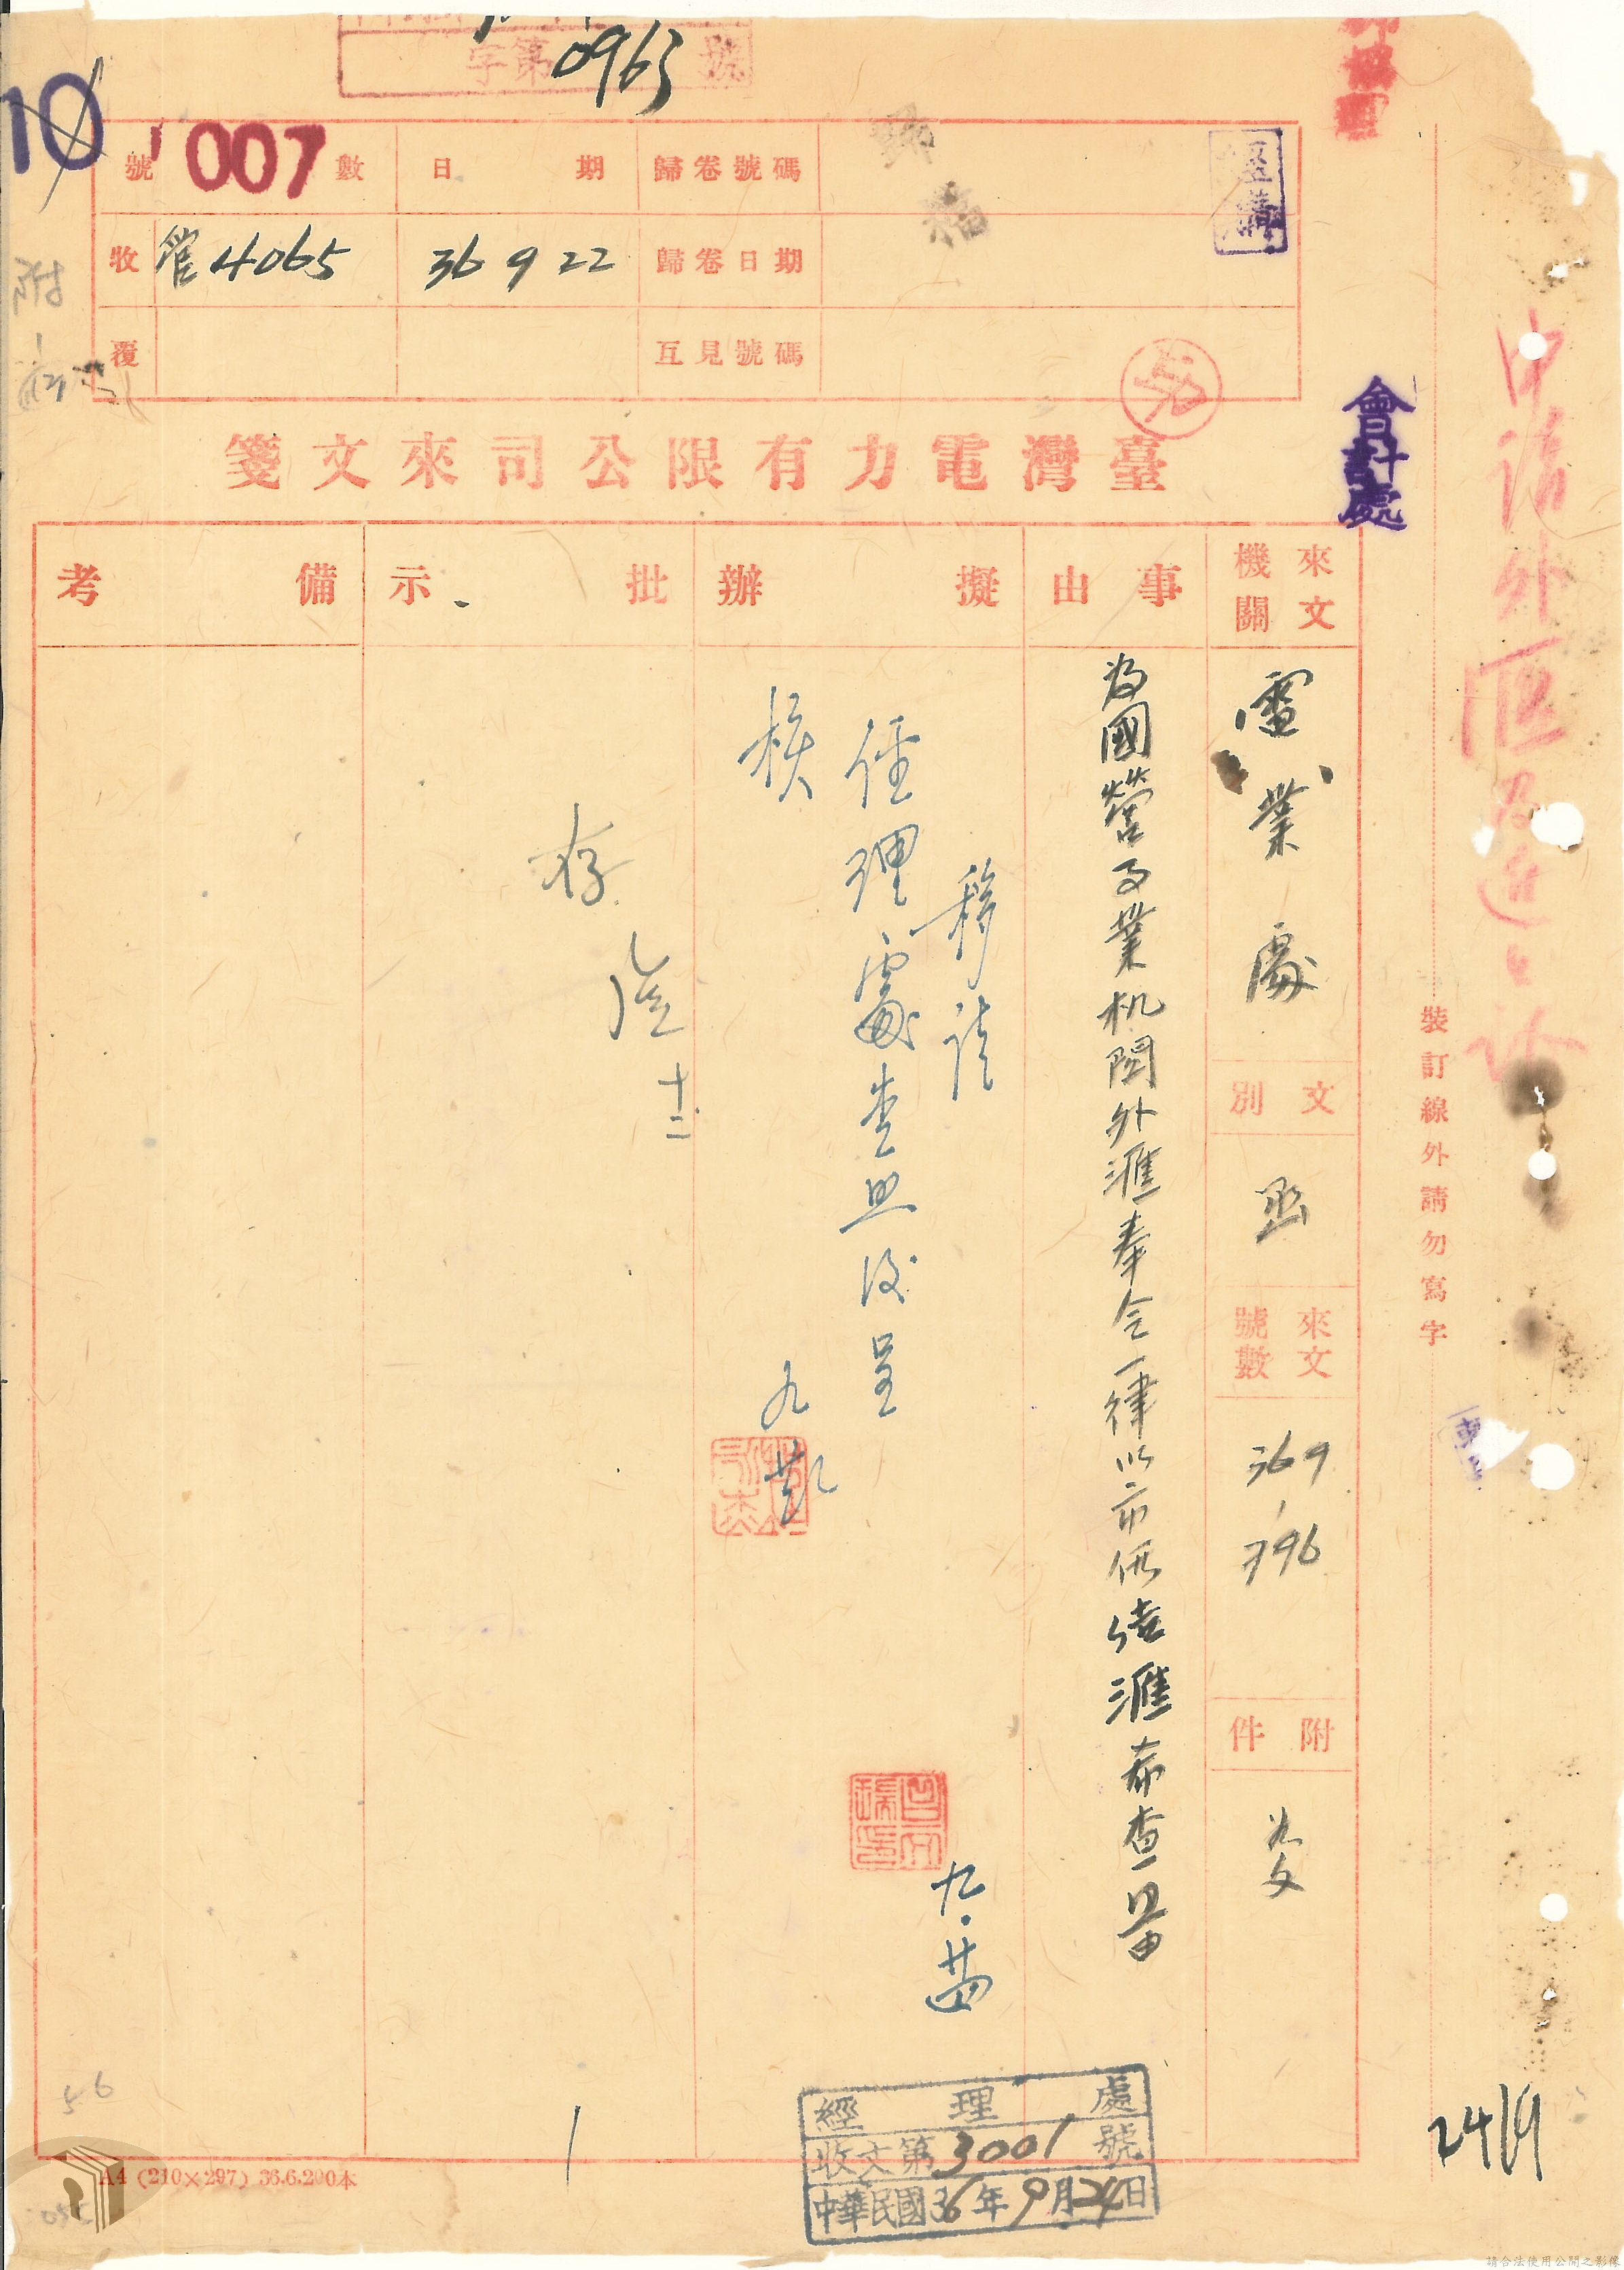 字第0963號
10
號007數
日期
歸卷號碼
收
管4065
36 9 22
歸卷日期
覆
互見號碼
附
會計處
臺灣電力有限公司來文箋
來文機關
電業處
文別
函
來文號數
369
396
附件
事由
為國營事業机関外滙奉令一律以市價結滙希查照由
擬辦
移請
經理處查照後呈
核
九·廿四
批示
存
十二
備考
申請外匯
裝訂線外請勿寫字
經理處
收文第3001號
中華民國36年9月24日
24/9
56
A4 (210×297) 36.6.200本
請合法使用公開之影像